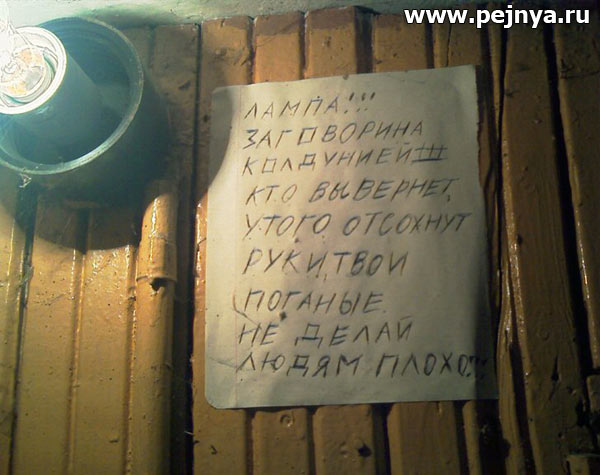 www.pejnya.ru
ЛАМПА!!!
ЗАГОВОРИНА
КОЛДУНИЕЙ!!!
КТО ВЫВЕРНЕТ,
У ТОГО ОТСОХНУТ
РУКИ, ТВОИ
ПОГАНЫЕ.
НЕ ДЕЛАЙ
ЛЮДЯМ ПЛОХО!!!